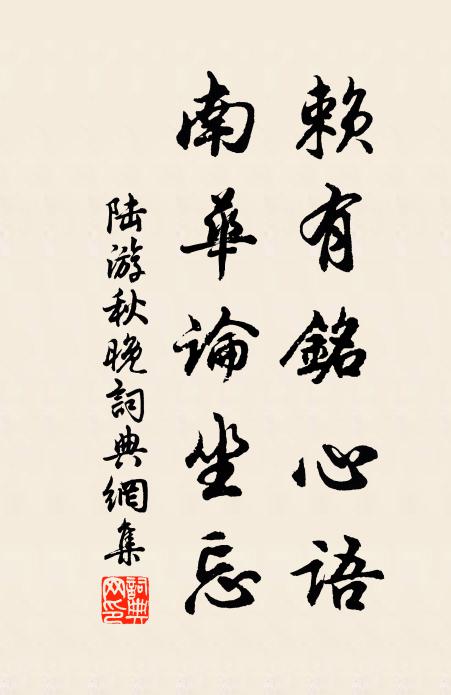 賴有銘心語
南華論坐忘
陸游秋晚詞典網集
詞典网印